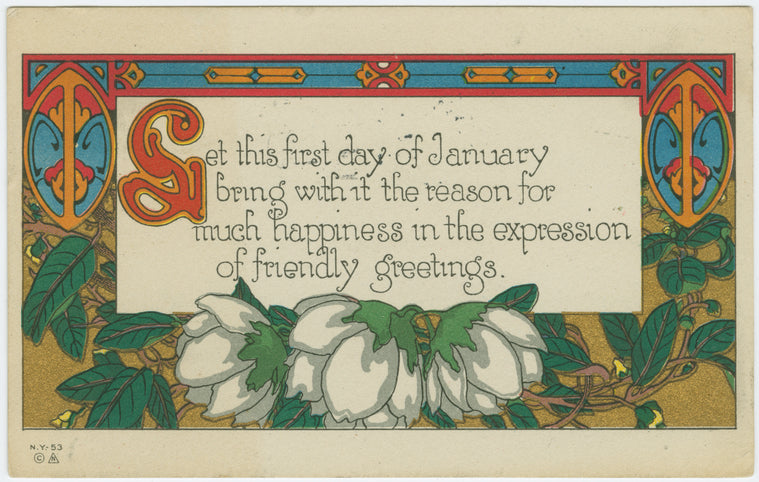 Let this first day of January
bring with it the reason for
much happiness in the expression
of friendly greetings.
N.Y.-53
© N